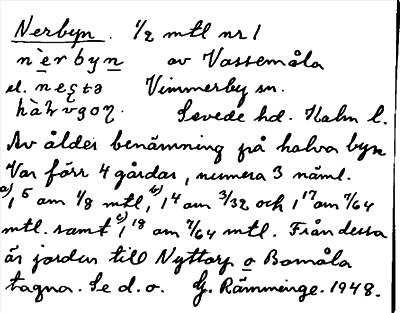 Nerbyn. 1/2 mtl nr 1
nèrbyn av Vassemåla
el. Vimmerby sn.
Sevede hd. Kalm l.
Av ålder benämning på halva byn
Var förr 4 gårdar, numera 3 näml.
a) 1⁵ om 1/8 mtl, b) 1⁴ om 3/32 och 1¹⁷ om 7/64
mtl. samt c) 1¹⁸ om 7/64 mtl. Från dessa
är jorden till Nyttorp o Bomåla
tagna. Se d. o. G. Rämminge. 1948.